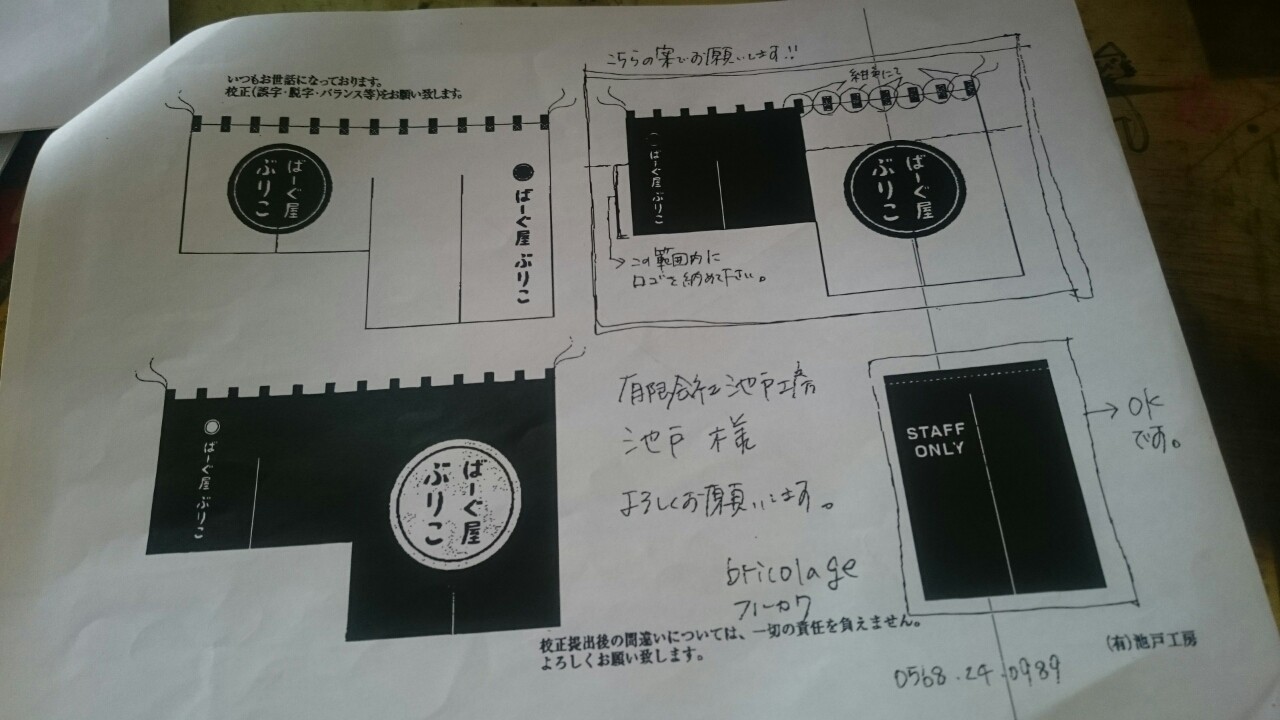 いつもお世話になっております。
校正(誤字・脱字・バランス等)をお願い致します。
こちらの案でお願いします!!
紺布にて
ばーぐ屋
ぶりこ
ばーぐ屋 ぶりこ
ばーぐ屋 ぶりこ
ばーぐ屋
ぶりこ
この範囲内に
ロゴを納めて下さい。
ばーぐ屋 ぶりこ
ばーぐ屋
ぶりこ
有限会社池戸工房
池戸 様
よろしくお願いします。
bricolage
フルカワ
STAFF
ONLY
OK
です。
校正提出後の間違いについては、一切の責任を負えません。
よろしくお願い致します。
(有)池戸工房
0568.24.0989